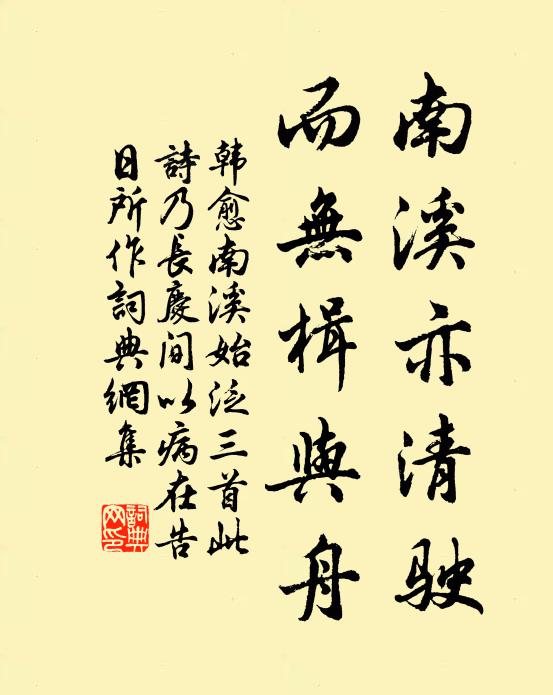 南溪亦清駛
而無楫與舟
韩愈南溪始泛三首此
詩乃長慶间以病在告
日所作詞典網集
詞典
网印